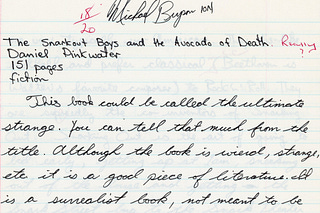 18
20
Michael Bryan 104
The Snarkout Boys and the Avocado of Death.
Daniel Pinkwater
?
151 pages
fiction
This book could be called the ultimate
strange. You can tell that much from the
title. Although the book is wierd, strange,
etc it is a good piece of literature. It
is a surrealist book, not meant to be